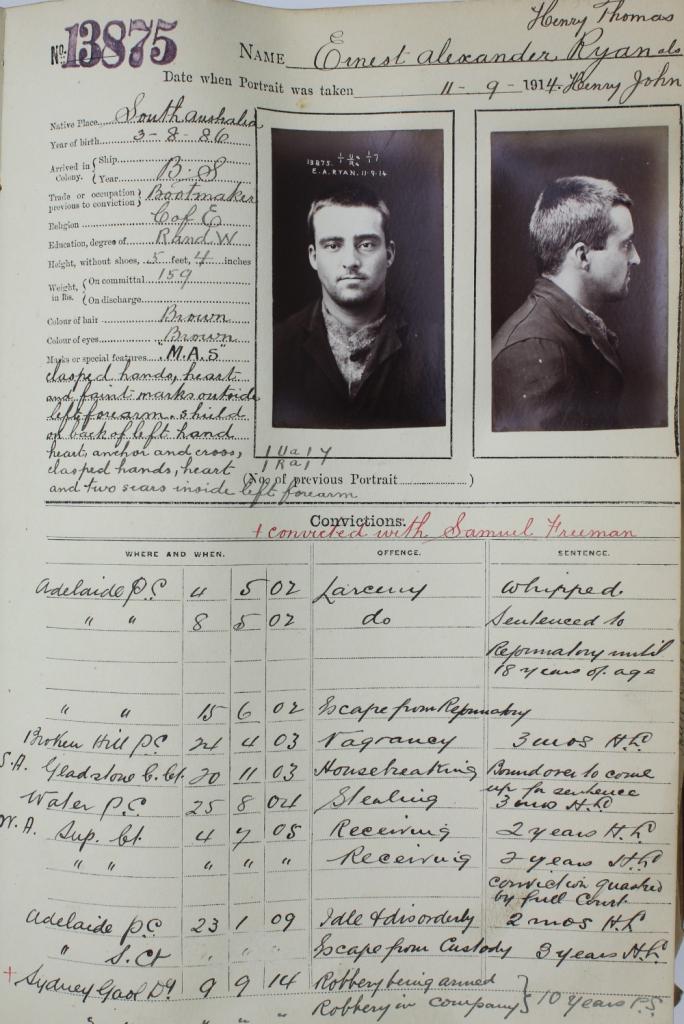 Henry Thomas
No. 13875 NAME Ernest Alexander Ryan als
Date when Portrait was taken 11 - 9 - 1914. Henry John
Native Place South Australia
Year of birth 3-8-86
Arrived in Colony. { Ship
Year B.S
Trade or occupation previous to conviction } Bootmaker
Religion C of E
Education, degree of R and W
Height, without shoes, 5 feet, 4 inches
Weight, in lbs. { On committal 159
On discharge
Colour of hair Brown
Colour of eyes Brown
Marks or special features "M.A.S"
clasped hands, heart
and faint marks outside
left forearm. shield
on back of left hand
heart, anchor and cross,
clasped hands, heart
and two scars inside left forearm
13875. 1 Ua 17
1 Ra
E.A.RYAN. 11-9-14
1 Ua 17
1 Ra 17
(No. of previous Portrait )
Convictions.
+ convicted with Samuel Freeman
WHERE AND WHEN. OFFENCE. SENTENCE.
Adelaide P.C 4 5 02 Larceny Whipped
" " 8 5 02 do Sentenced to
Reformatory until
18 years of age
" " 15 6 02 Escape from Reformatory
Broken Hill P.C 24 4 03 Vagrancy 3 mos H.L
S.A. Gladstone C. Ct. 20 11 03 Housebreaking Bound over to come
up for sentence
Water P.C 25 8 04 Stealing 3 mos H.L
W.A. Sup. Ct. 4 7 05 Receiving 2 years H.L
" " " " " Receiving 2 years H.L
conviction quashed
by full Court
Adelaide P.C 23 1 09 Idle & disorderly 2 mos H.L
" S.Ct " " " Escape from Custody 3 years H.L
+ Sydney Gaol D 9 9 14 Robbery being armed
" " " " Robbery in company } 10 years P.S.